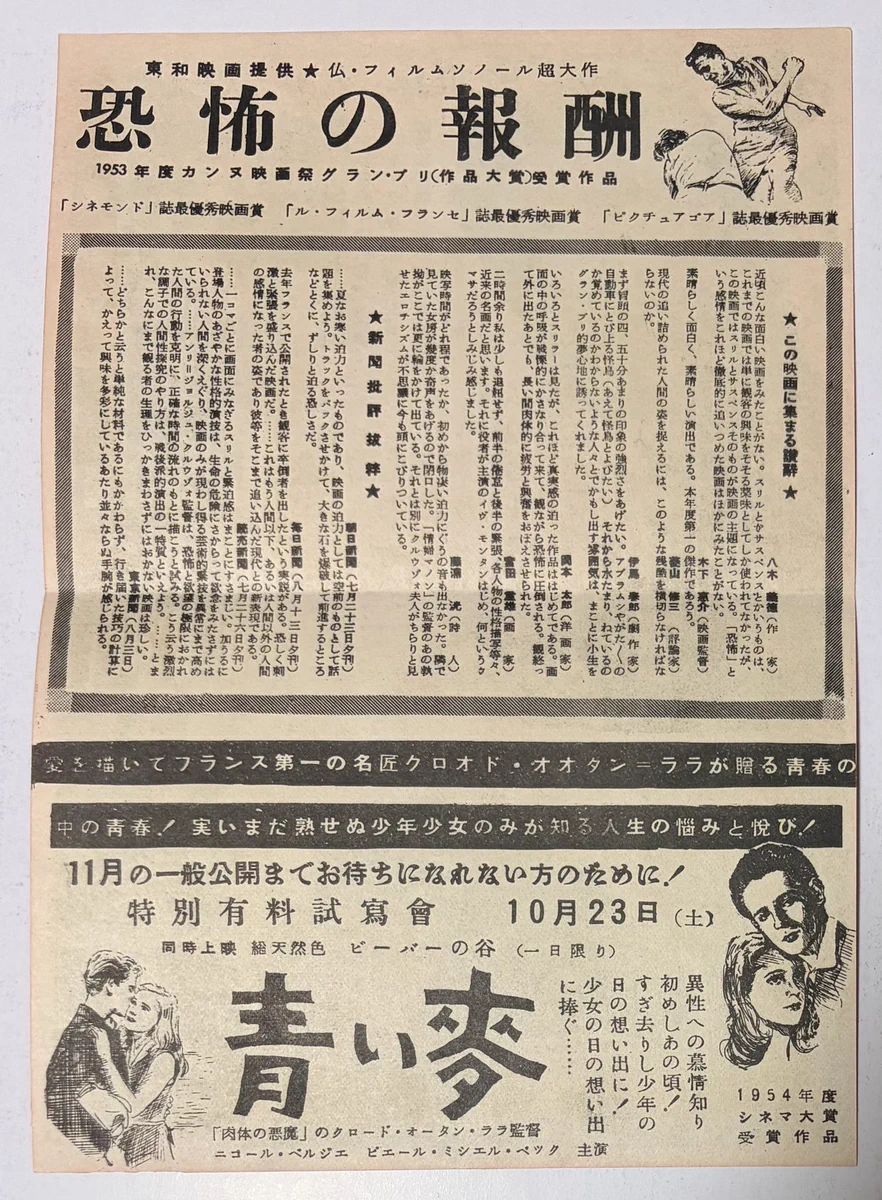 東和映画提供★仏・フィルムソノール超大作
恐怖の報酬
1953年度カンヌ映画祭グラン・プリ(作品大賞)受賞作品
「シネモンド」誌最優秀映画賞 「ル・フィルム・フランセ」誌最優秀映画賞 「ピクチュアゴア」誌最優秀映画賞
★この映画に集まる讃辞★
近頃こんな面白い映画をみたことがない。スリルとかサスペンスとかいうものは、
これまでの映画では単に観客の興味をそそる薬味としてしか使われてなかったが、
この映画ではスリルとサスペンスそのものが映画の主題になっている。「恐怖」と
いう感情をこれほど徹底的に追いつめた映画はほかにみたことがない。
八木 義徳(作 家)
素晴らしく面白く、素晴らしい演出である。本年度第一の傑作であろう。
木下 恵介(映画監督)
現代の追い詰められた人間の姿を捉えるには、このような残酷を横切らなければな
らないのか。
菱山 修三(評論家)
まず冒頭の四、五十分あまりの印象の強烈さをあげたい。アブラムシやがたく〱の
自動車にとび上る怪鳥(あえて怪鳥とよびたい)それから水たまり、ねているの
か覚めているのかわからないような人々とでかもし出す雰囲気は、まことに小生を
グラン・プリ的夢心地に誘ってくれました。
伊馬 春部(劇作家)
いろいろとスリラーは見たが、これほど真実感の迫った作品ははじめてである。画
面の中の呼吸が戦慄的にかさなり合って来て、観ながら恐怖に圧倒される。観終っ
て外に出たあとでも、長い間肉体的に疲労と興奮をおぼえさせられた。
岡本 太郎(洋画家)
二時間余り私は少しも退屈せず、前半の倦怠と後半の緊張、各人物の性格描写等々、
近来の名画だと思います。それに役者が主演のイヴ・モンタンはじめ、何というウ
マサだろうとしみじみ感じました。
宮田 重雄(画 家)
映写時間がどれ程であったか、初めから物凄い迫力にぐうの音も出なかった。隣で
見ていた女房が幾度か奇声をあげるので閉口した。「情婦マノン」の監督のあの執
拗がここでは更に輪をかけて出ている。それとは別にクルウゾォ夫人がちらりと見
せたエロチシズムが不思議に今も頭にこびりついている。
藤浦 洸(詩 人)
★新聞批評抜粋★
……夏なお寒い迫力といったものであり、映画の迫力としては空前のものとして話
題を集めよう。トラックをバックさせかけて、大きな石を爆破して前進するところ
などとくに、ずしりと迫る恐しさだ。
朝日新聞(七月二十三日夕刊)
去年フランスで公開されたとき観客に卒倒者を出したという実説がある。恐しく刺
激と緊張を盛り込んだ映画だ。……これはもう人間以下、あるいは人間以外の人間
の感情になった者の姿であり彼等をそこまで追い込んだ現代との対決表現である。
毎日新聞(八月十三日夕刊)
……一コマごとに画面にみなぎるスリルと緊迫感はまことにすさまじい。加うるに
登場人物のあざやかな性格的演技は、生命の危険にさからって欲意をみたさずには
いられない人間を深くえぐり、映画のみが現わし得る芸術的緊技を異常にまで高め
ている。
読売新聞(七月二十六日夕刊)
……アンリ=ジョルジュ・クルウゾォ監督は、恐怖と欲望の極限におかれ
た人間の行動を克明に、正確な時間の流れのもとに描こうと試みる。こう云う激烈
な調子での人間性探究のやり方は、戦後派的演出の一特質といえよう。……とま
れ、こんなにまで観る者の生理をひっかきまわさずにはおかない映画は珍しい。
東京新聞(八月三日)
……どちらかと云うと単純な材料であるにもかかわらず、行き届いた技巧の計算に
よって、かえって興味を多彩にしているあたり並々ならぬ手腕が感じられる。
愛を描いてフランス第一の名匠クロオド・オオタン=ララが贈る青春の
中の青春!実いまだ熟せぬ少年少女のみが知る人生の悩みと悦び!
11月の一般公開までお待ちになれない方のために!
特別有料試寫會 10月23日(土)
同時上映 総天然色 ビーバーの谷 (一日限り)
青い麥
異性への慕情知り
初めしあの頃!
すぎ去りし少年の
日の想い出に!
少女の日の想い出
に捧ぐ……
「肉体の悪魔」のクロード・オータン・ララ監督
ニコール・ベルジエ ピエール・ミシエル・ベック 主演
1954年度
シネマ大賞
受賞作品